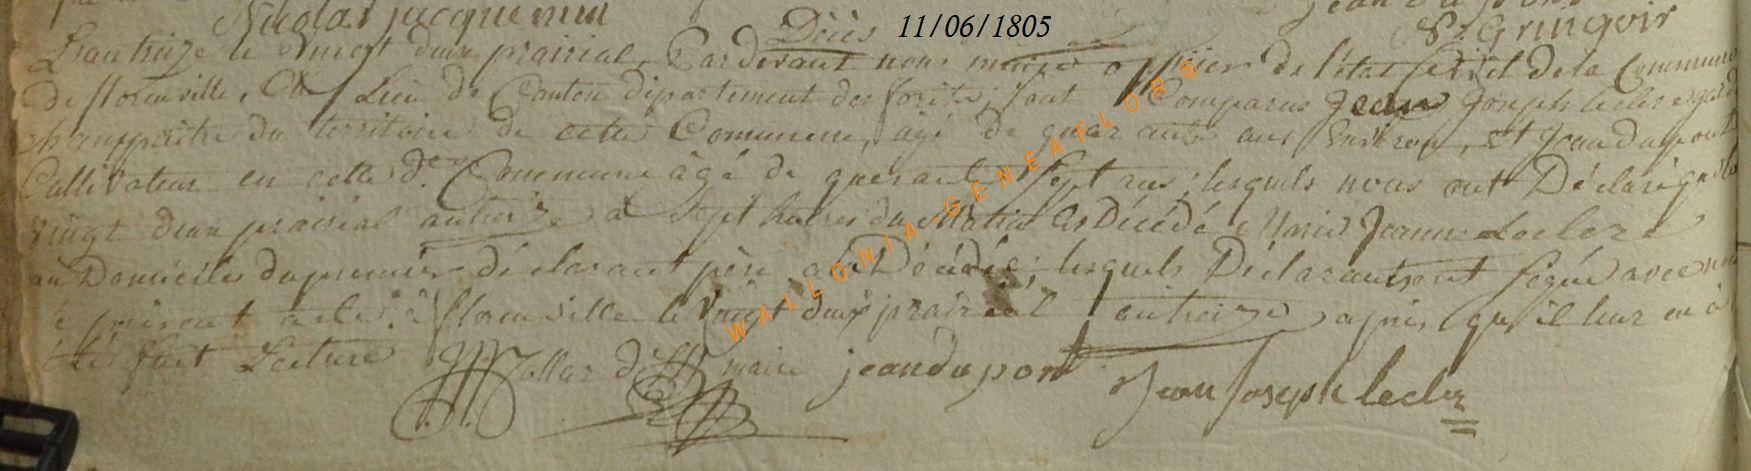 Nicolas jacquemin
jean dupont
Décès 11/06/1805
N: Gringoir
L'an treize le vingt deux prairial, Pardevant nous maire officier de l'état Civil de la Commune
de florenville, Chef Lieu de Canton département des forêts; sont Comparus Jean Joseph leclere garde
champêtre du territoire de cette Commune, âgé de quarante ans Environ, et Jean dupont
Cultivateur en cette d.te Commune âgé de quarante Sept ans; lesquels nous ont Déclaré que le
vingt deux prairial an treize à Sept heures du Matin Est Décédé Marie Jeanne Leclere
au Domicile du premier déclarant père à la Décédée; lesquels Déclarants ont Signé avec nous
le présent acte. à florenville le vingt deux prairial an treize après qu'il leur en à
été fait Lecture
maire jean dupont Jean Joseph lecler
WALLONIA-GENEAFLOR ®